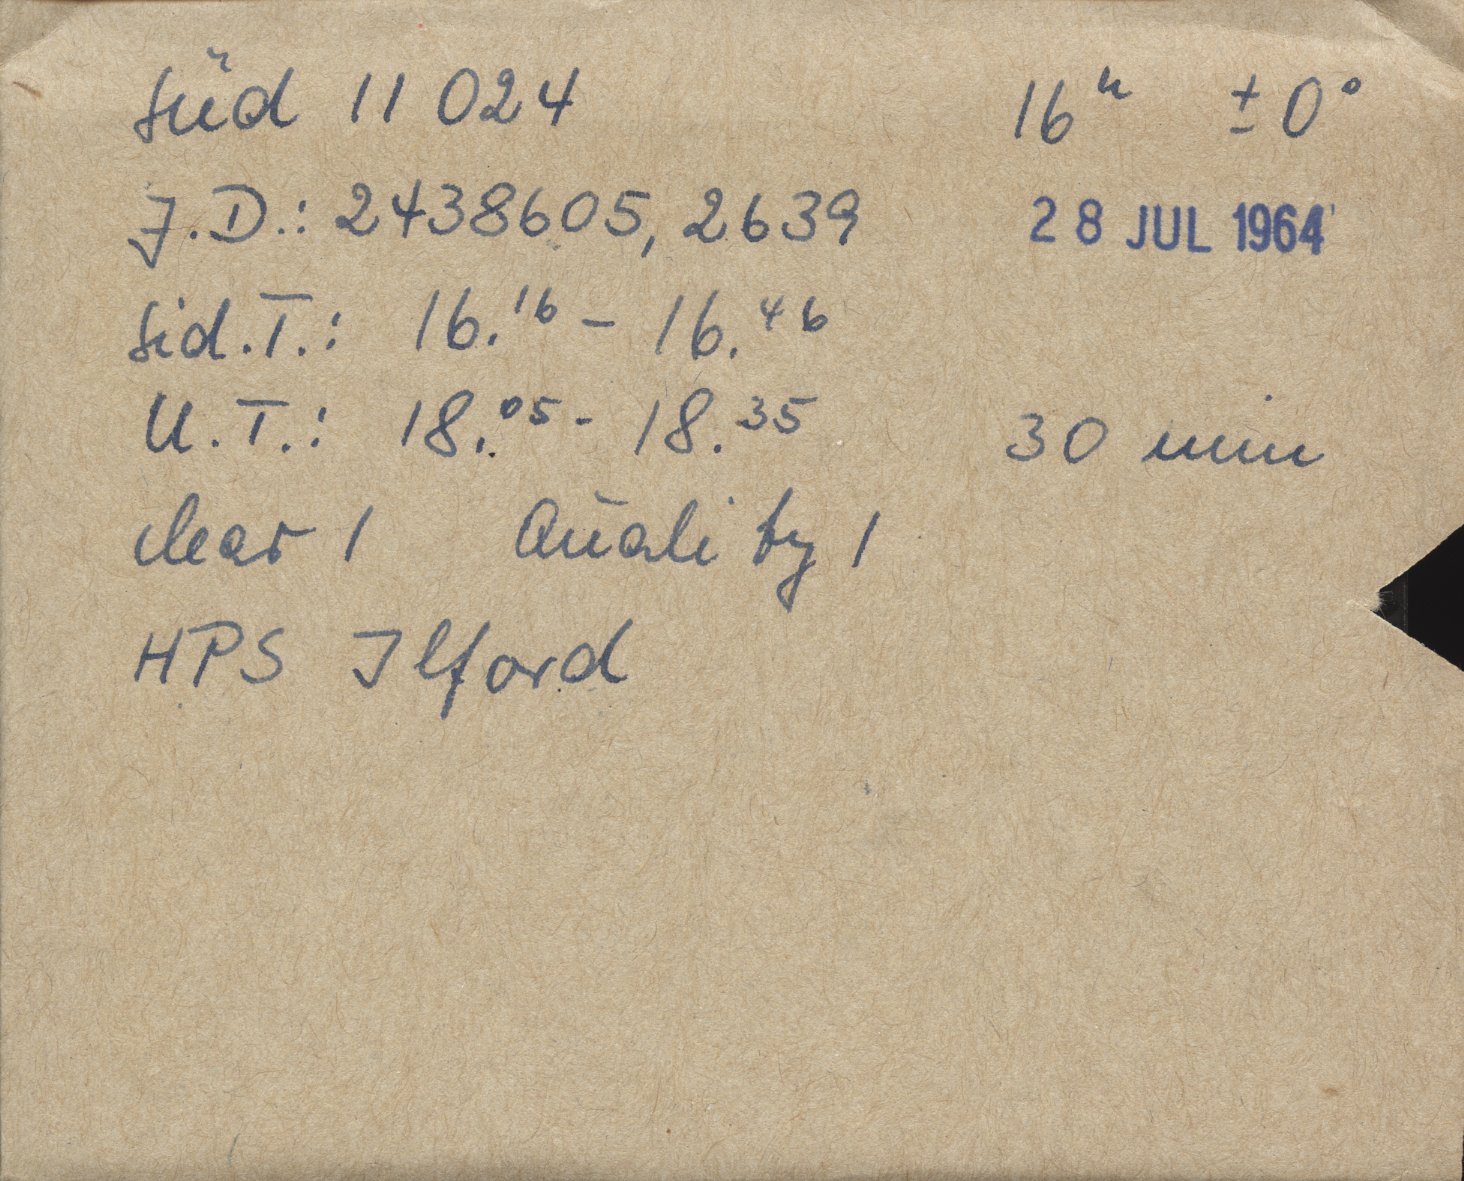 Süd 11 024 16ʰ ± 0°
J.D.: 2438605,2639 28 JUL 1964
Sid.T.: 16.¹⁶ - 16.⁴⁶
U.T.: 18.⁰⁵ - 18.³⁵ 30 min
clear 1 Quality 1
HPS Ilford